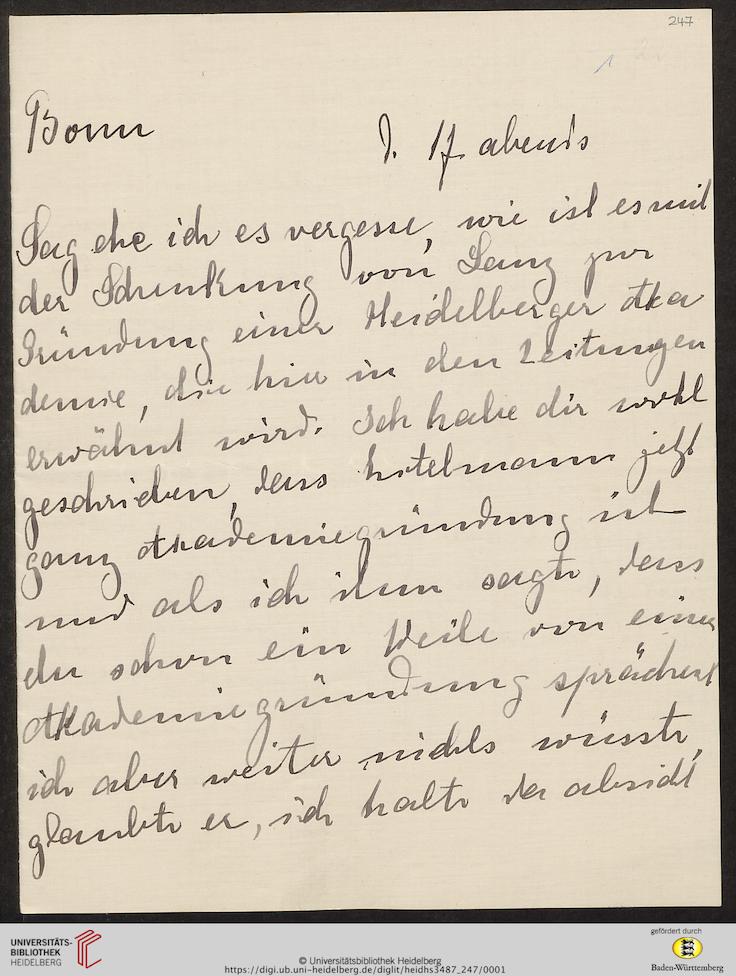 247
1
Bonn
D. 17. abends
Sag ehe ich es vergesse, wie ist es mit
der Schenkung von Lanz zur
Gründung einer Heidelberger Aka
demie, die hier in den Zeitungen
erwähnt wird. Ich habe dir wohl
geschrieben, dass jetzt
ganz Akademiegründung ist
und als ich ihm sagte, dass
du schon ein Weile von einer
Akademiegründung sprächest
ich aber weiter nichts wüsste,
glaubte er, ich halte da absicht
UNIVERSITÄTS-
BIBLIOTHEK
HEIDELBERG
© Universitätsbibliothek Heidelberg
https://digi.ub.uni-heidelberg.de/diglit/heidhs3487_247/0001
gefördert durch
Baden-Württemberg